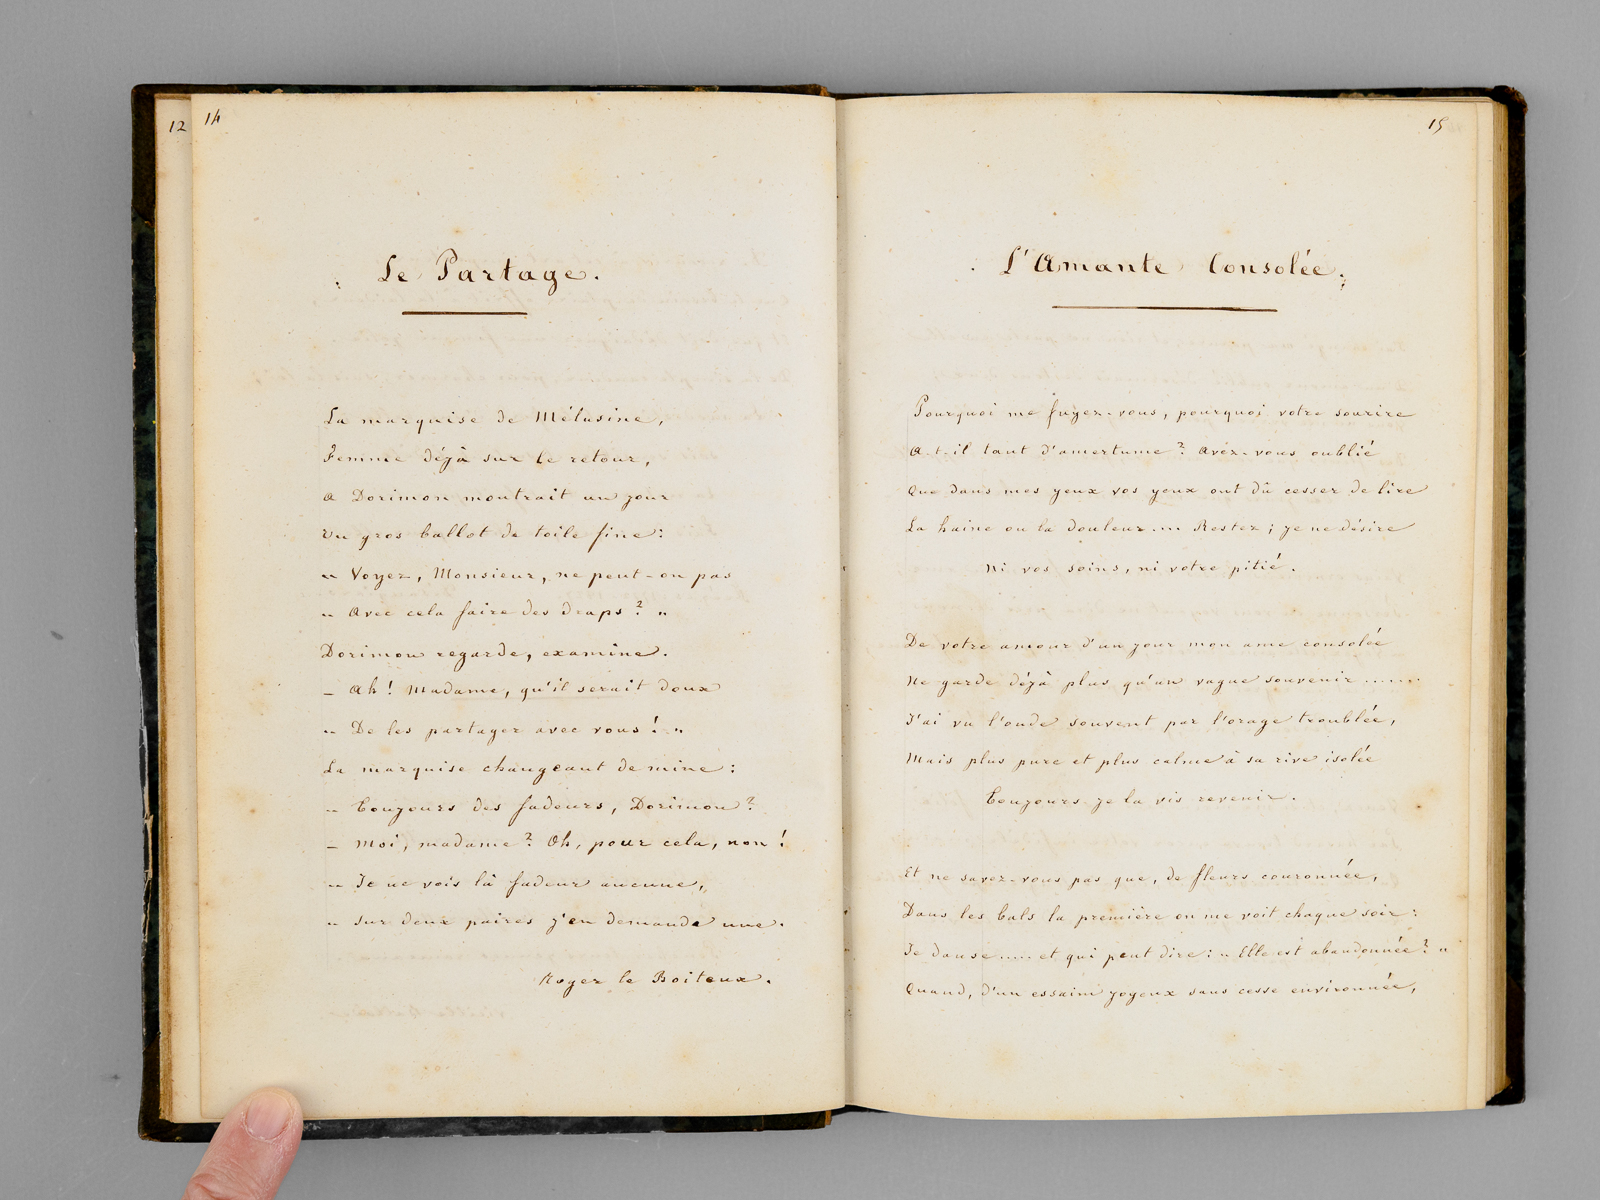 12
14
Le Partage.
La marquise de Mélusine,
Femme déjà sur le retour,
A Dorimon montrait un jour
Un gros ballot de toile fine:
" Voyez, Monsieur, ne peut-on pas
" Avec cela faire des draps? "
Dorimon regarde, examine.
_ Ah! Madame, qu'il serait doux
" De les partager avec vous! "
La marquise changeant de mine:
_ Toujours des fadeurs, Dorimon?
_ Moi, madame? Oh, pour cela, non!
" Je ne vois là fadeur aucune,
" Sur deux paires j'en demande une.
Royer le Boiteux.
15
L'Amante Consolée.
Pourquoi me fuyez-vous, pourquoi votre sourire
A-t-il tant d'amertume? Avez-vous oublié
Que dans mes yeux vos yeux ont dû cesser de lire
La haine ou la douleur.... Restez; je ne désire
Ni vos soins, ni votre pitié.
De votre amour d'un jour mon ame consolée
Ne garde déjà plus qu'un vague souvenir.......
J'ai vu l'onde souvent par l'orage troublée,
Mais plus pure et plus calme à sa rive isolée
Toujours je la vis revenir.
Et ne savez-vous pas que, de fleurs couronnée,
Dans les bals la première on me voit chaque soir:
Je danse..... et qui peut dire: " Elle est abandonnée? "
Quand, d'un essaim joyeux sans cesse environnée,